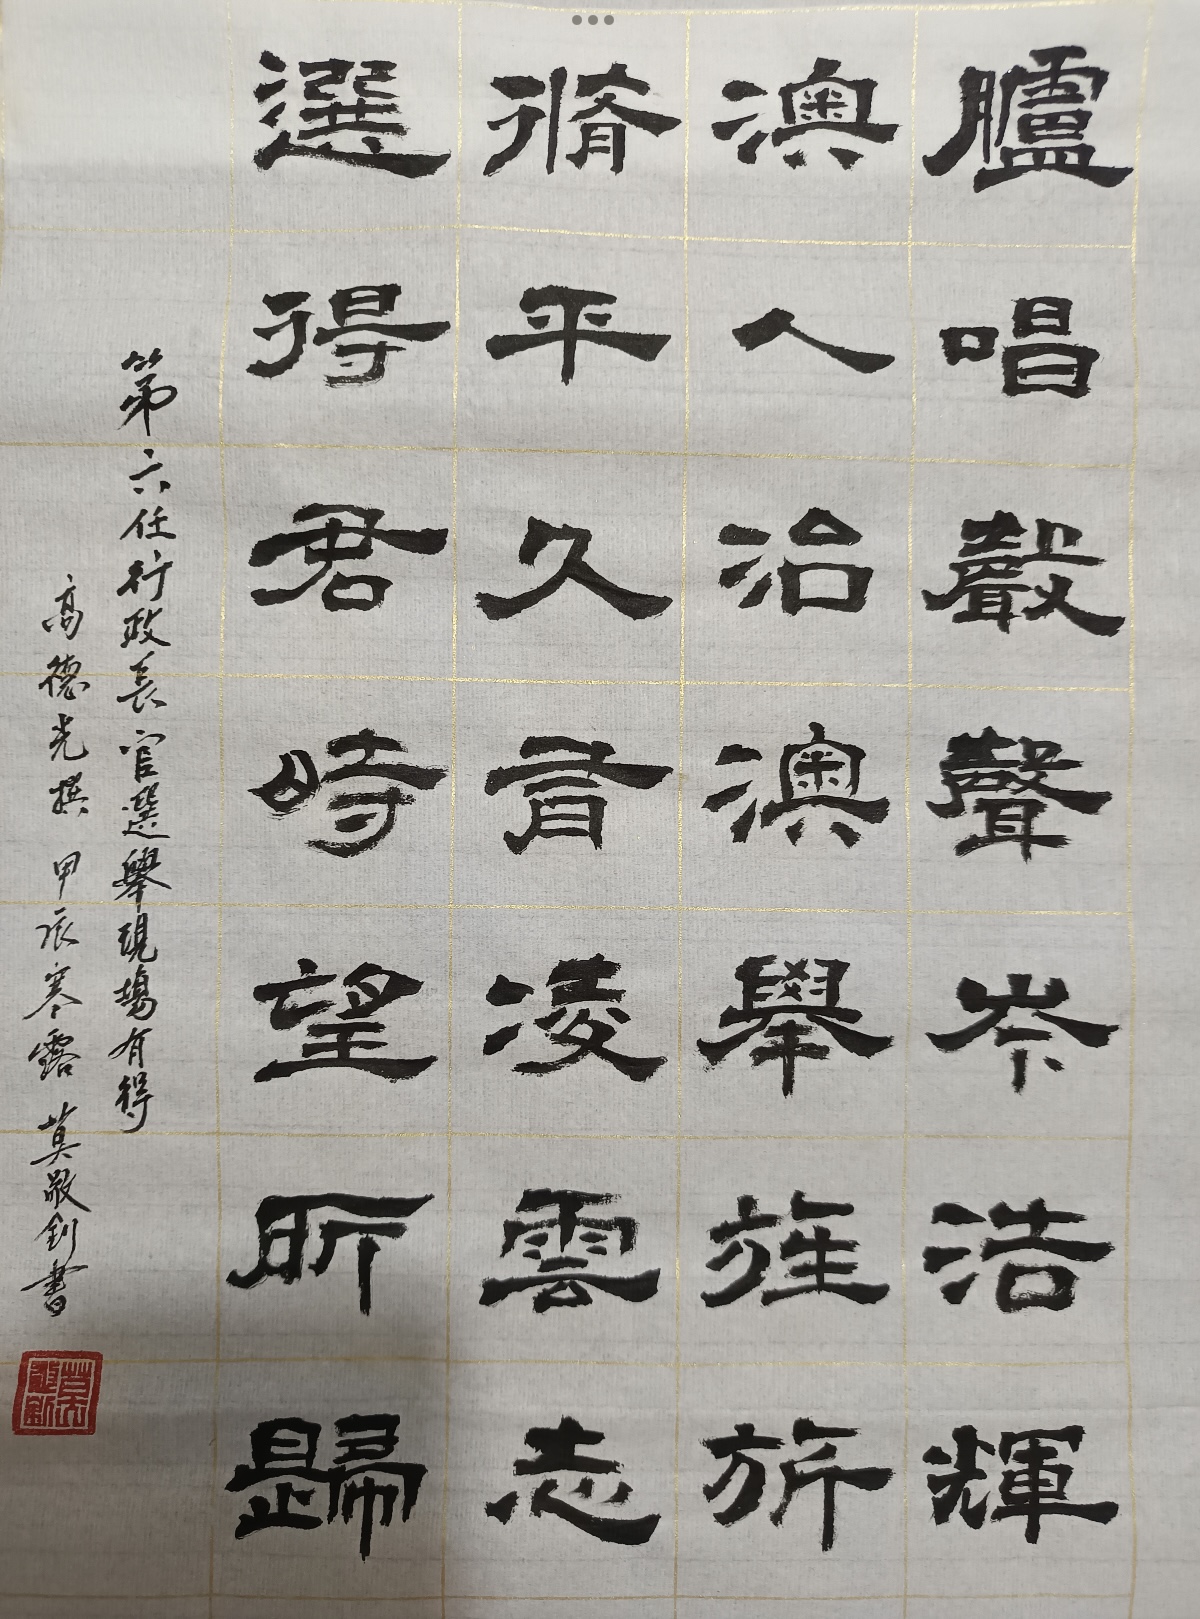 臚唱聲聲岑浩輝
澳人治澳舉旌旂
脩平久有凌雲志
選得君時望所歸
第六任行政長官選舉現場有得
高德光撰 甲辰寒露 莫敬釗書